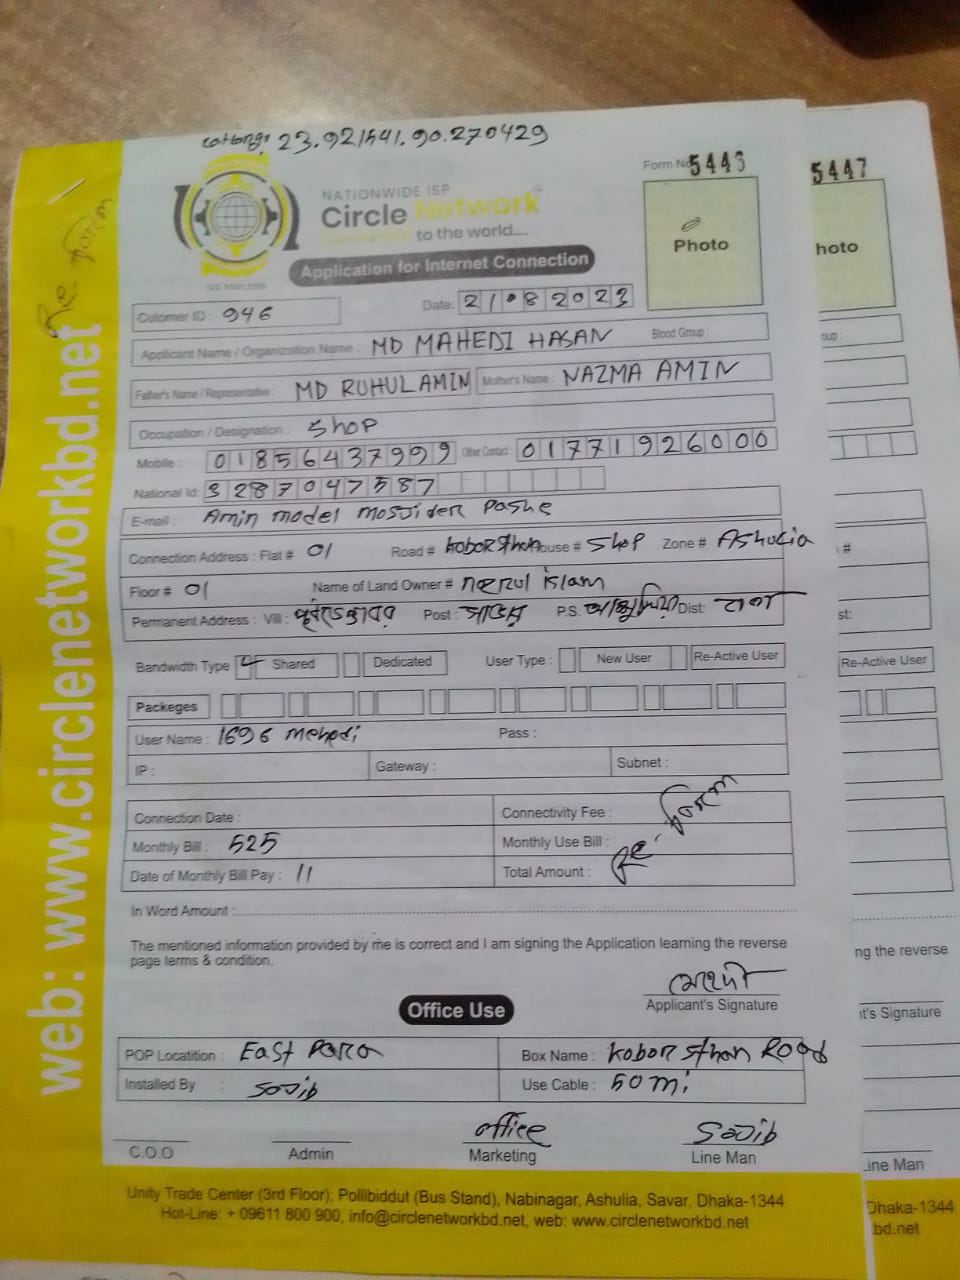 23.921541.90.270429
Form No 5443
5447
NATIONWIDE ISP
Circle Network
to the world....
ISO 9001:2015
Photo
hoto
Application for Internet Connection
Cutomer ID : 946
Date: 21082023
Applicant Name / Organization Name : MD MAHEDI HASAN Blood Group :
oup :
Father's Name / Representative : MD RUHUL AMIN Mother's Name : NAZMA AMIN
Occupation / Designation : Shop
Mobile : 01856437999 Other Contact : 01771926000
National Id: 3287047587
E-mail : Amin model mosjider pashe
Connection Address : Flat # 01 Road # kobor sthan House # Shop Zone # Ashulia
#
Floor # 01 Name of Land Owner # islam
Permanent Address : Vill : Post : P.S. আশুলিয়া Dist: ঢাকা
st:
Bandwidth Type Shared Dedicated User Type : New User Re-Active User
Re-Active User
Packeges
User Name : 1696 Mehedi Pass :
IP : Gateway : Subnet :
Connection Date : Connectivity Fee :
Monthly Bill : 525 Monthly Use Bill :
Date of Monthly Bill Pay : 11 Total Amount :
Re: ফরম
In Word Amount :
The mentioned information provided by me is correct and I am signing the Application learning the reverse
page terms & condition.
ng the reverse
Applicant's Signature
t's Signature
Office Use
POP Locatition : East Para Box Name : kobor sthan Road
Installed By : Sojib Use Cable : 50 mi
office Sojib
C.O.O Admin Marketing Line Man
Line Man
Unity Trade Center (3rd Floor), Pollibiddut (Bus Stand), Nabinagar, Ashulia, Savar, Dhaka-1344
Hot-Line: + 09611 800 900, info@circlenetworkbd.net, web: www.circlenetworkbd.net
Dhaka-1344
bd.net
web: www.circlenetworkbd.net
Re: ফরম